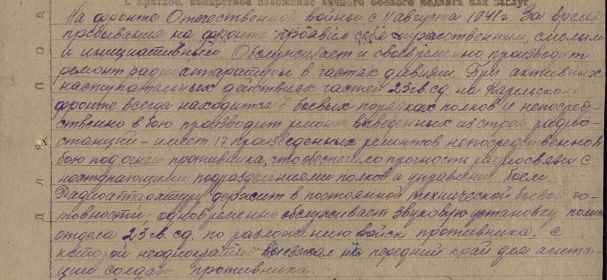 I. Краткое, конкретное изложение личного боевого подвига или заслуг
На фронте Отечественной войны с 11 августа 1941 г. За время
пребывания на фронте проявил себя мужественным, смелым
и инициативным. Обслуживает и своевременно производит
ремонт радиоаппаратуры в частях дивизии. При активных
наступательных действиях частей 23 гв. сд. на Карельском
фронте всегда находится в боевых порядках полков и непосред-
ственно в бою производит ремонт выведенных из строя радио-
станций – имеет 17 произведенных ремонтов непосредственно в
бою под огнем противника, что обеспечило прочность радиосвязи с
наступающими подразделениями полков и управления боем.
Радиоаппаратуру держит в постоянной технической боевой го-
товности; одновременно обслуживает звуковую установку полит
отдела 23 гв. сд. по разложению войск противника, с
которой неоднократно выезжал на передний край для агита-
ции солдат противника.